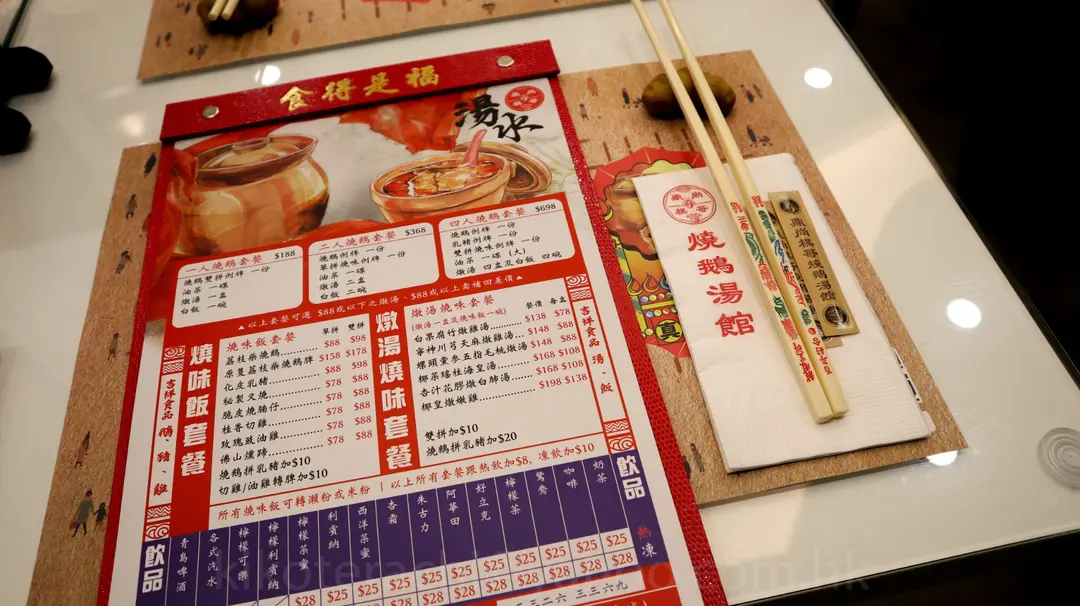 食得是福
湯水
一人燒鵝套餐 $188
燒鵝雙拼例牌 一份
油菜 一碟
燉湯 一盅
白飯 一碗
二人燒鵝套餐 $368
燒鵝例牌 一份
單拼燒味例牌 一份
油菜 一碟
燉湯 二盅
白飯 二碗
四人燒鵝套餐 $698
燒鵝例牌 一份
乳豬例牌 一份
雙拼燒味例牌 一份
油菜 一碟 (大)
燉湯 四盅及白飯 四碗
▲以上套餐可選 $88或以下之燉湯，$88或以上需補回差價▲
燒味飯套餐
吉祥食品 鵝、豬、雞
燒味飯套餐 單拼 雙拼
荔枝柴燒鵝 $88 $98
原隻荔枝柴燒鵝髀 $158 $178
化皮乳豬 $88 $98
秘製叉燒 $78 $88
脆皮燒腩仔 $78 $88
桂香切雞 $78 $88
玫瑰豉油雞 $78 $88
佛山燻蹄 $78 $88
燒鵝拼乳豬加$10
切雞/油雞轉髀加$10
燉湯燒味套餐
燉湯燒味套餐 餐價 每盅
(燉湯一盅及燒味飯一碗)
白果腐竹燉雞湯 $138 $78
寧神川芎天麻燉雞湯 $148 $88
螺頭螢參五指毛桃燉湯 $148 $88
椰茶瑤柱海皇湯 $168 $108
杏汁花膠燉白肺湯 $168 $108
椰皇燉燉雞 $198 $138
雙拼加$10
燒鵝拼乳豬加$20
吉祥食品 湯、飯
所有燒味飯可轉瀨粉或米粉 | 以上所有套餐跟熱飲加$8, 凍飲加$10
飲品
青島啤酒
各式汽水
檸檬可樂
檸檬利賓納
檸檬茶蜜
利賓納
西洋茶蜜
杏霜
朱古力
阿華田
好立克
檸檬茶
鴛鴦
咖啡
奶茶
飲品
熱 $25 $25 $25 $25 $25 $25 $25 $25 $25
凍 $28 $28 $28 $28 $28 $28 $28
鼎尚棋哥
燒鵝湯館
鼎尚棋哥燒鵝湯館
真